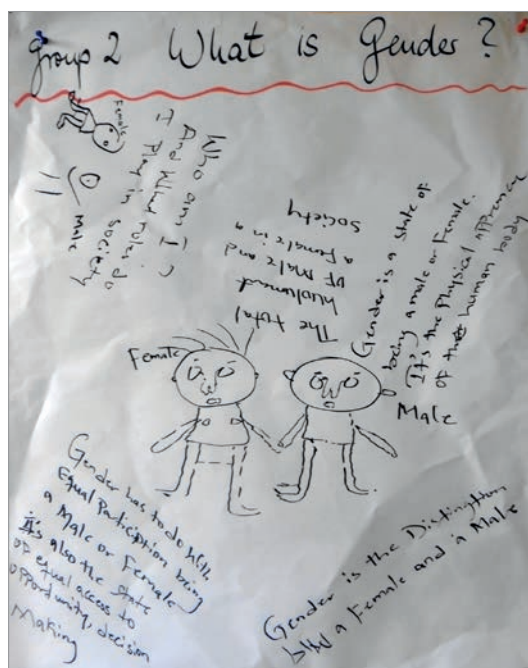 Group 2 What is Gender?
Female
Male
Who am I
And Why roles do
I play in society
The total
Of Male and
a Female in a
Society
Gender is a state of
being a male or Female.
It's the Physical
of the human body
Female
Male
Gender has to do With
Equal Participation being
a Male or Female
it's also the state
of equal access to
opportunity, decision
Making
Gender is the Distinction
b/w a Female and a Male